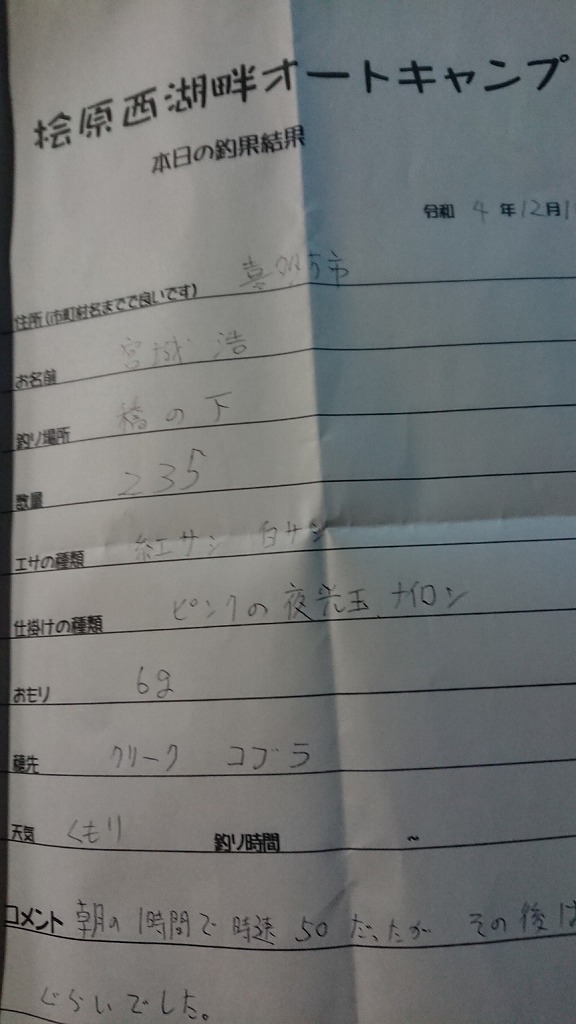 桧原西湖畔オートキャンプ
本日の釣果結果
令和 4 年 12月1
住所(市町村名までで良いです) 喜多方市
お名前 宮城 浩
釣り場所 橋の下
数量 235
エサの種類 紅サシ 白サシ
仕掛けの種類 ピンクの夜光玉、ナイロン
おもり 6g
穂先 クリーク コブラ
天気 くもり 釣り時間 ~
コメント 朝の1時間で時速50だったが その後は
ぐらいでした。